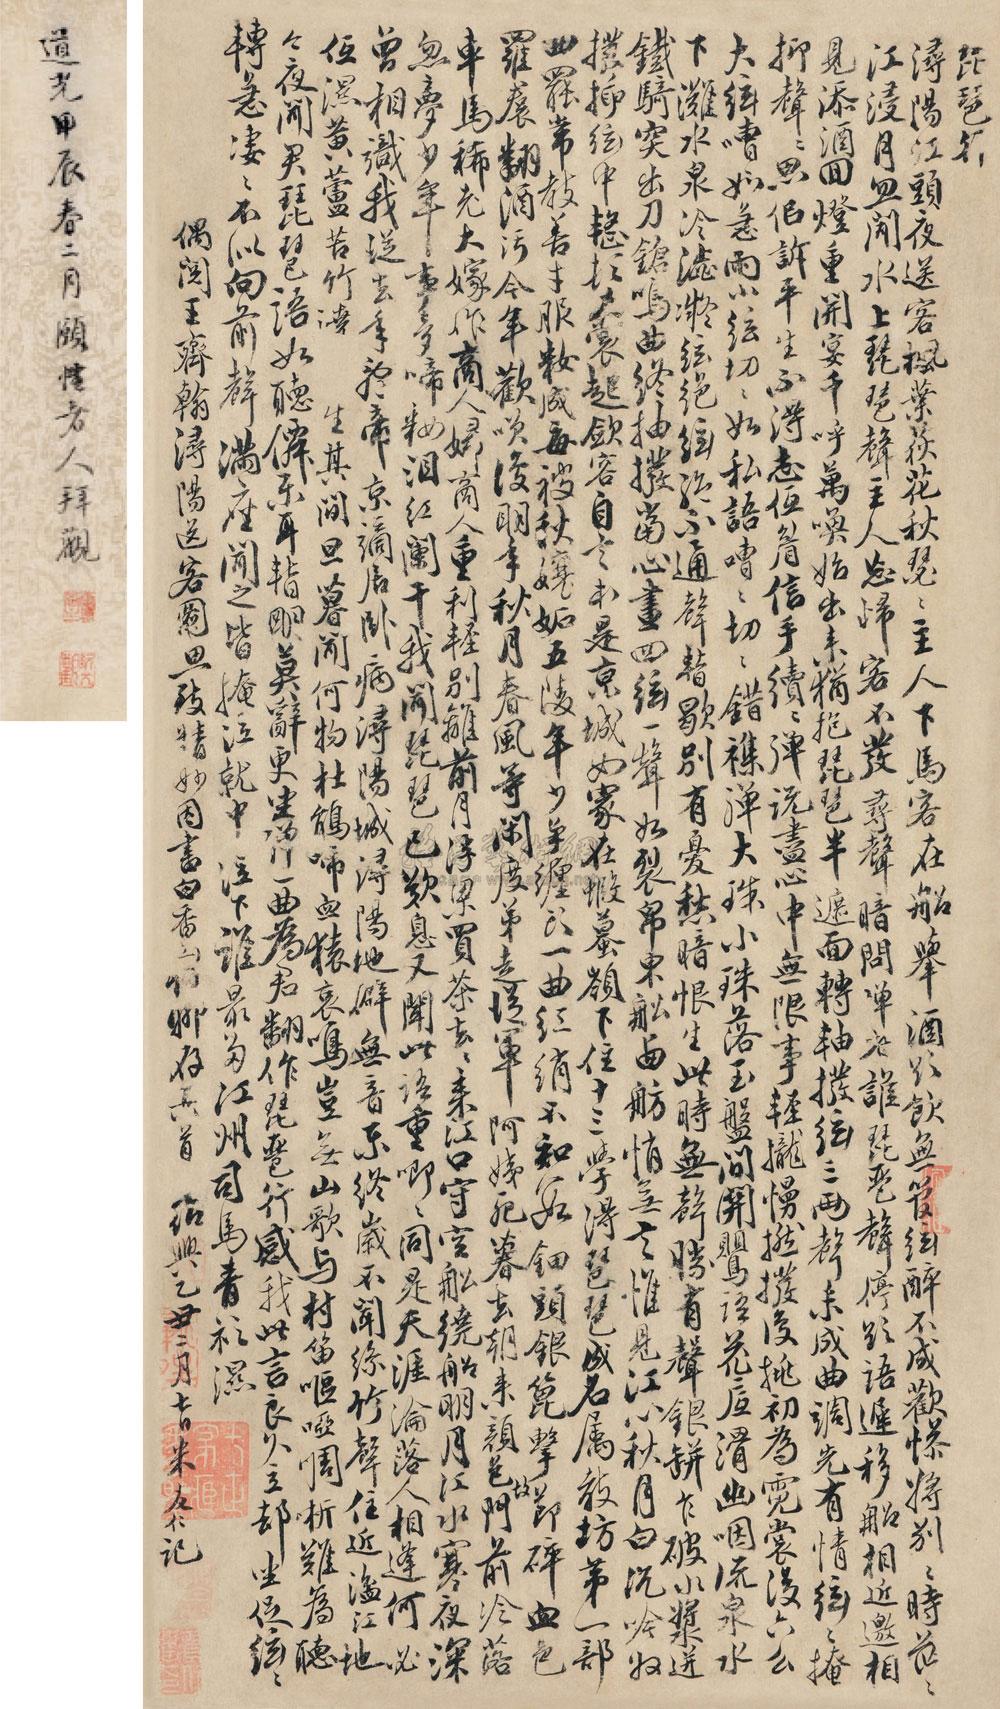 琵琶行
潯陽江頭夜送客楓葉荻花秋瑟〻主人下馬客在船舉酒欲飲無管絃醉不成歡慘將別〻時茫〻
江浸月忽聞水上琵琶聲主人忘歸客不發尋聲暗問彈者誰琵琶聲停欲語遲移船相近邀相
見添酒回燈重開宴千呼萬喚始出來猶抱琵琶半遮面轉軸撥絃三兩聲未成曲調先有情絃〻掩
抑聲〻思似訴平生不得志低眉信手續〻彈説盡心中無限事輕攏慢撚撥復挑初為霓裳後六么
大絃嘈如急雨小絃切〻如私語嘈〻切〻錯襍彈大珠小珠落玉盤間關鶯語花底滑幽咽流泉水
下灘水泉冷澁凝絃絕絃絕不通聲暫歇別有憂愁暗恨生此時無聲勝有聲銀缾乍破水漿迸
鐵騎突出刀鎗鳴曲終抽撥當心畫四絃一聲如裂帛東船西舫悄無言惟見江心秋月白沉吟收
撥插絃中整頓衣裳起斂容自言本是京城女家在蝦蟇嶺下住十三學得琵琶成名属教坊第一部
曲罷常教善才服粧成每被秋孃妬五陵年少爭纏頭一曲紅綃不知數鈿頭銀篦擊節碎血色
羅裙翻酒污今年歡笑復明年秋月春風等閑度弟走從軍阿姨死暮去朝來顏色故門前冷落
車馬稀老大嫁作商人婦商人重利輕別離前月浮梁買茶去〻來江口守空船繞船明月江水寒夜深
忽夢少年事夢啼粧淚紅闌干我聞琵琶已歎息又聞此語重唧〻同是天涯淪落人相逢何必
曾相識我從去年辭帝京謫居臥病潯陽城潯陽地僻無音樂終歲不聞絲竹聲住近湓江地
低濕黃蘆苦竹遶生其間旦暮聞何物杜鵑啼血猿哀鳴豈無山歌与村笛嘔啞啁哳難為聽
今夜聞君琵琶語如聽僊樂耳暫明莫辭更坐彈一曲為君翻作琵琶行感我此言良久立却坐促絃〻
轉急凄〻不似向前聲滿座聞之皆掩泣就中泣下誰最多江州司馬青衫濕
偶閲王齊翰潯陽送客圖思致精妙因書白香山行聊存其首 紹興乙丑二月米友仁記
道光甲辰春二月頤性老人拜觀